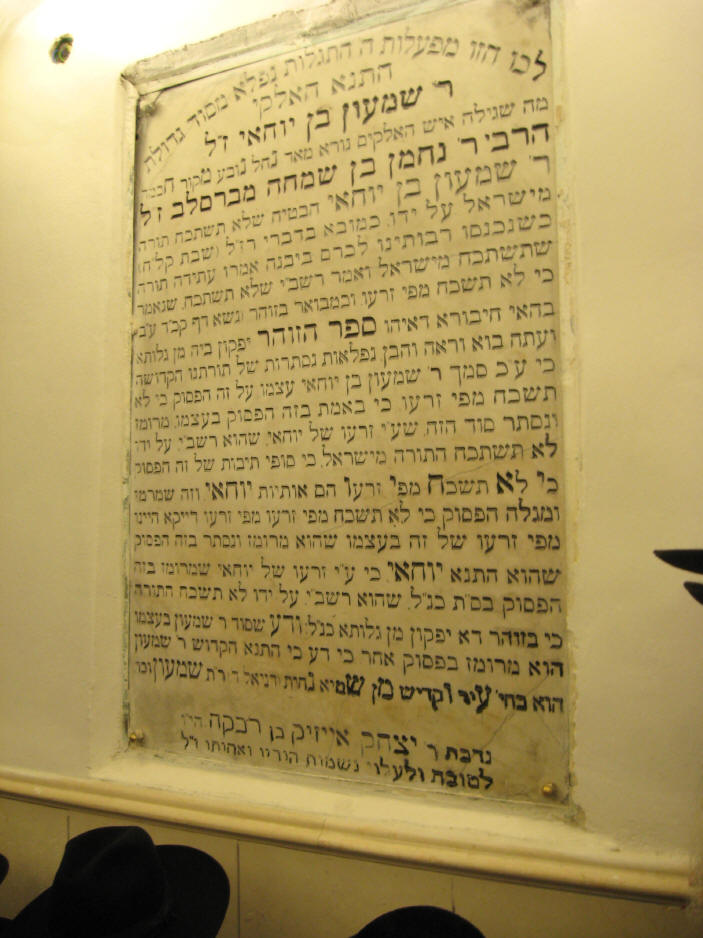 לכו חזו מפעלות ה התגלות נפלא מסוד גדולת
התנא האלקי
ר' שמעון בן יוחאי ז"ל
מה שגילה איש האלקים נורא מאד נחל נובע מקור חכמה
הרבי ר' נחמן בן שמחה מברסלב ז"ל
ר' שמעון בן יוחאי הבטיח שלא תשתכח תורה
מישראל על ידו. כמובא בדברי רז"ל (שבת קל"ח)
כשנכנסו רבותינו לכרם ביבנה אמרו עתידה תורה
שתשתכח מישראל ואמר רשב"י שלא תשתכח. שנאמר
כי לא תשכח מפי זרעו וכמבואר בזוהר (נשא דף קכ"ד ע"ב)
בהאי חיבורא דאיהו ספר הזוהר יפקון ביה מן גלותא
ועתה בוא וראה והבן נפלאות נסתרות של תורתנו הקדושה
כי ע"כ סמך ר' שמעון בן יוחאי עצמו על זה הפסוק כי לא
תשכח מפי זרעו כי באמת בזה הפסוק בעצמו מרומז
ונסתר סוד הזה. שע"י זרעו של יוחאי שהוא רשב"י. על ידו
לא תשתכח התורה מישראל. כי סופי תיבות של זה הפסוק
כי לא תשכח מפי זרעו הם אותיות יוחאי. וזה שמרמז
ומגלה הפסוק כי לא תשכח מפי זרעו מפי זרעו דייקא היינו
מפי זרעו של זה בעצמו שהוא מרומז ונסתר בזה הפסוק
שהוא התנא יוחאי. כי ע"י זרעו של יוחאי שמרומז בזה
הפסוק בס"ת כנ"ל. שהוא רשב"י. על ידו לא תשכח התורה
כי בזוהר דא יפקון מן גלותא כנ"ל. ודע שסוד ר' שמעון בעצמו
הוא מרומז בפסוק אחר כי דע כי התנא הקדוש ר' שמעון
הוא בחי' עיר וקדיש מן שמיא נחית (דניאל ד') ר"ת שמעון וכו'
נדבת ר' יצחק אייזיק בן רבקה הי"ו
לטובת ולעלוי נשמות הוריו ואחותו ז"ל